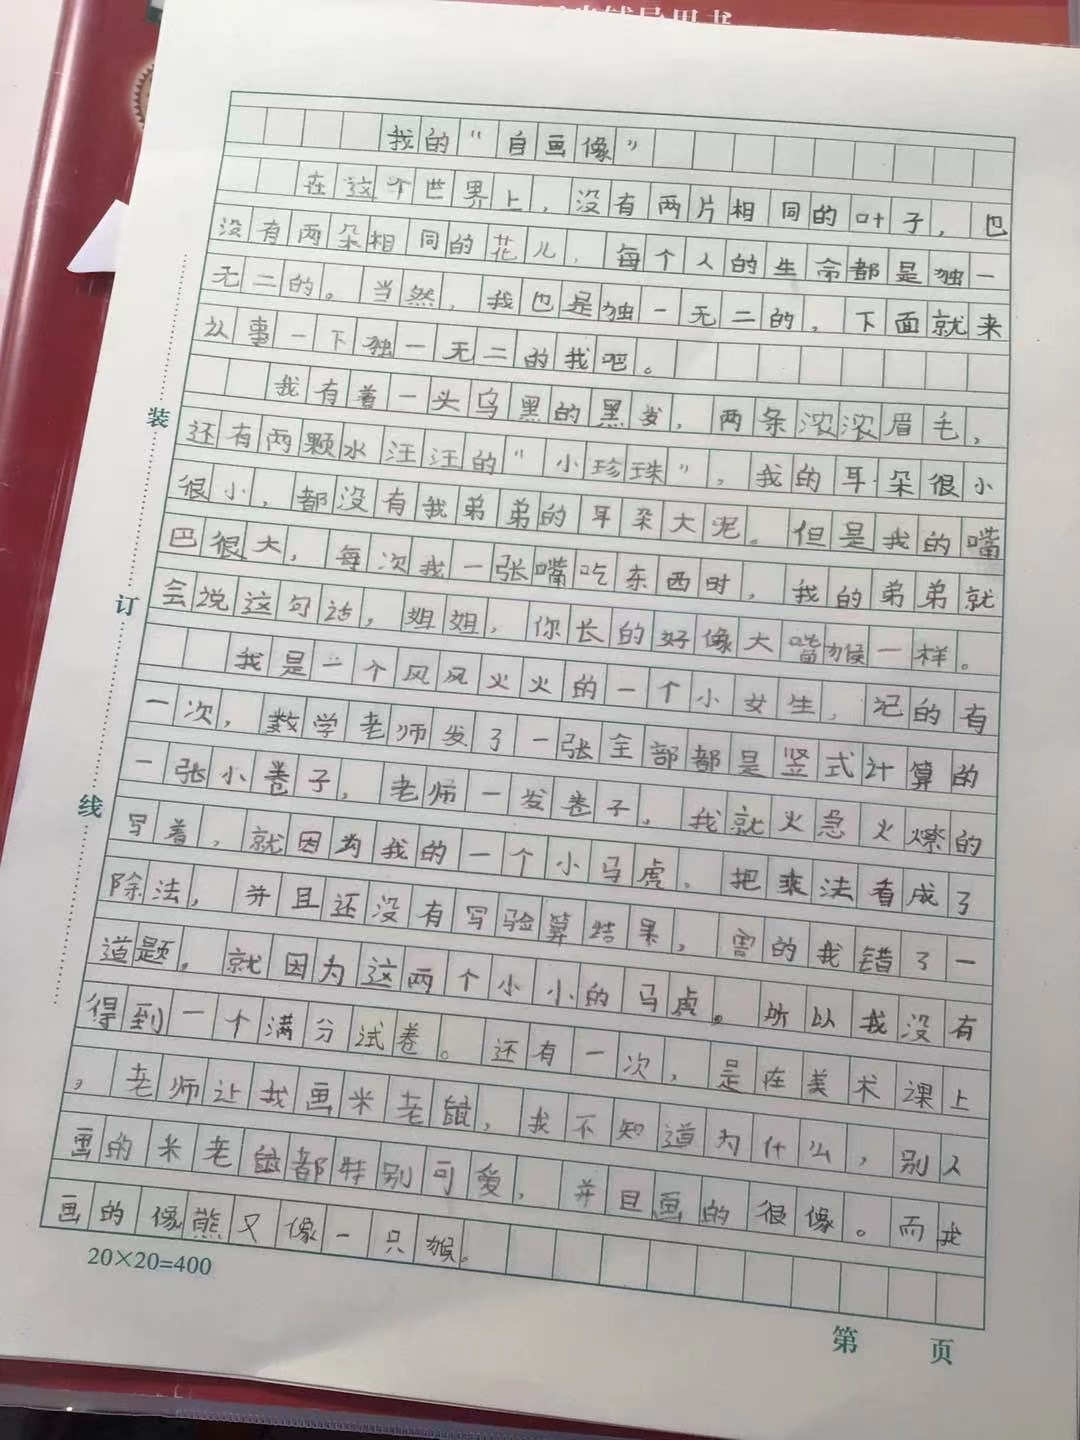 我的“自画像”
在这个世界上，没有两片相同的叶子，也
没有两朵相同的花儿，每个人的生命都是独一
无二的。当然，我也是独一无二的，下面就来
认事一下独一无二的我吧。
我有着一头乌黑的黑发，两条浓浓眉毛，
还有两颗水汪汪的“小珍珠”，我的耳朵很小
很小，都没有我弟弟的耳朵大呢。但是我的嘴
巴很大，每次我一张嘴吃东西时，我的弟弟就
会说这句话，姐姐，你长的好像大嘴猴一样。
我是一个风风火火的一个小女生，记的有
一次，数学老师发了一张全部都是竖式计算的
一张小卷子，老师一发卷子，我就火急火燎的
写着，就因为我的一个小马虎，把乘法看成了
除法，并且还没有写验算结果，害的我错了一
道题。就因为这两个小小的马虎。所以我没有
得到一个满分试卷。还有一次，是在美术课上
，老师让我画米老鼠，我不知道为什么，别人
画的米老鼠都特别可爱，并且画的很像。而我
画的像熊又像一只猴。
20×20=400
第 页
装
订
线